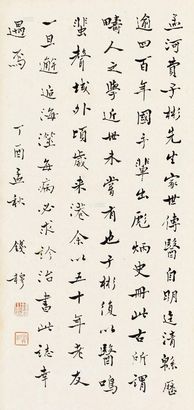 孟河費子彬先生家世傳醫自明迄清緜歷
逾四百年國手輩出彪炳史冊此古所謂
疇人之學近世未嘗有也子彬復以醫鳴
蜚聲域外頃歲来港余以五十年老友
一旦邂逅海澨每病必求診治書此誌幸
遇焉 丁酉孟秋 錢穆